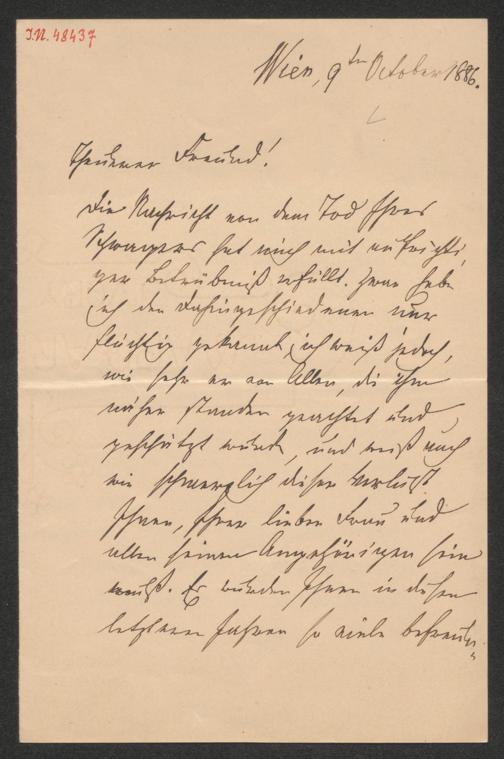 I.N. 48437
Wien, 9ten October 1886.
Theurer Freund!
Die Nachricht von dem Tod Ihres
Schwagers hat mich mit aufrichti-
ger Betrübniß erfüllt. Zwar habe
ich den Dahingeschiedenen nur
flüchtig gekannt, ich weiß jedoch,
wie sehr er von Allen, die ihm
näher standen geachtet und
geschätzt wurde, und weiß auch
wie schmerzlich dieser Verlust
Ihnen, Ihrer lieben Frau und
allen seinen Angehörigen sein
muß. Es wurden Ihnen in diesen
letzteren Jahren so viele